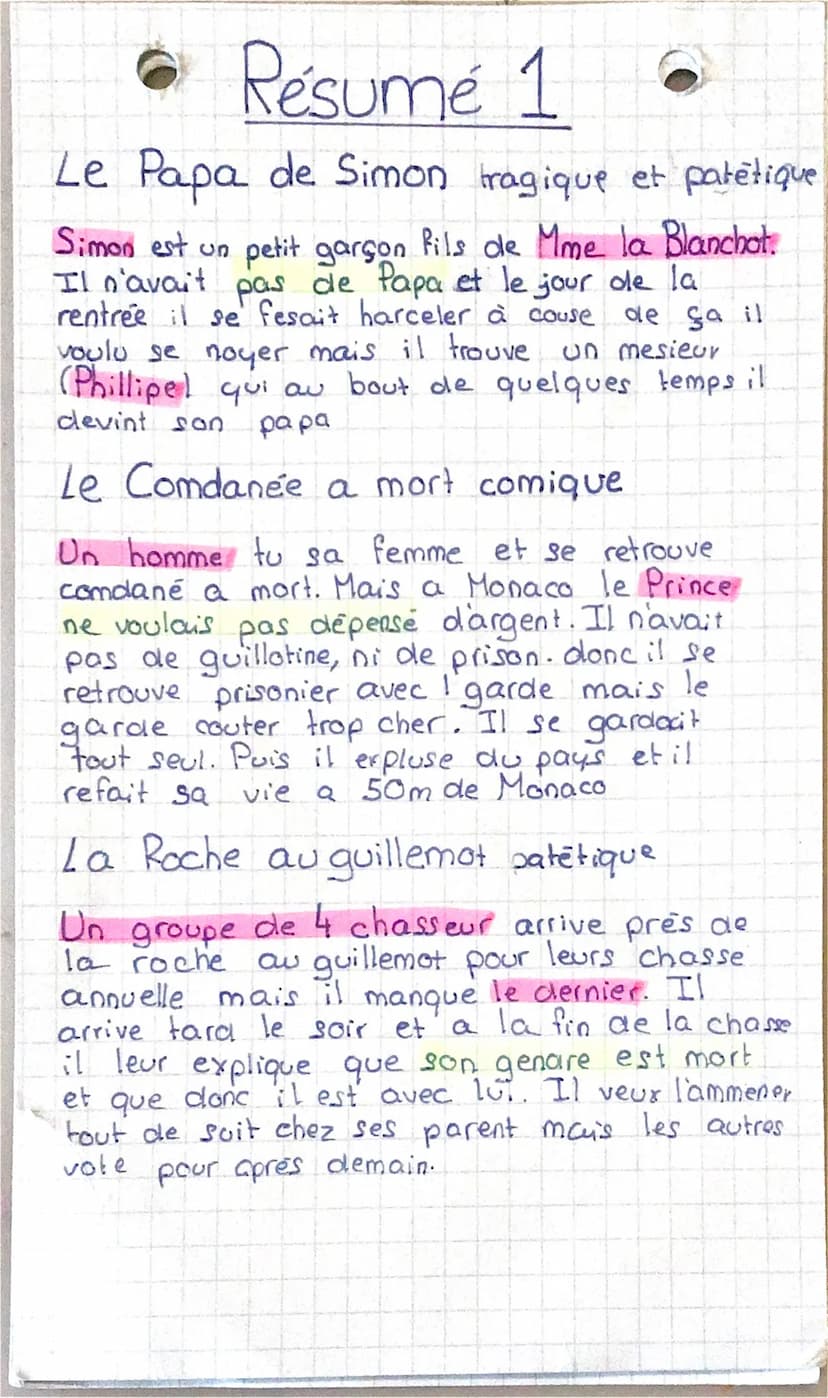 Résumé 1
Le Papa de Simon tragique et patétique
Simon est un petit garçon fils de Mme la Blanchot.
Il n'avait pas de Papa et le jour de la
rentrée il se fesait harceler à couse de ça il
voulu se noyer mais il trouve un mesieur
(Phillipe) qui au bout de quelques temps il
devint son papa
Le Comdanée a mort comique
Un homme tu sa femme et se retrouve
comdané a mort. Mais a Monaco le Prince
ne voulais pas dépensé d'argent. Il n'avait
pas de guillotine, ni de prison. donc il se
retrouve prisonier avec 1 garde mais le
garde couter trop cher. Il se gardait
tout seul. Puis il expluse du pays et il
refait sa vie a 50m de Monaco
La Roche au guillemot patétique
Un groupe de 4 chasseur arrive prés de
la roche au guillemot pour leurs chasse
annuelle mais il manque le dernier. Il
arrive tard le soir et a la fin de la chasse
il leur explique que son genare est mort
et que donc il est avec lui. Il veux l'ammener
tout de suit chez ses parent mais les autres
vote pour aprés demain.